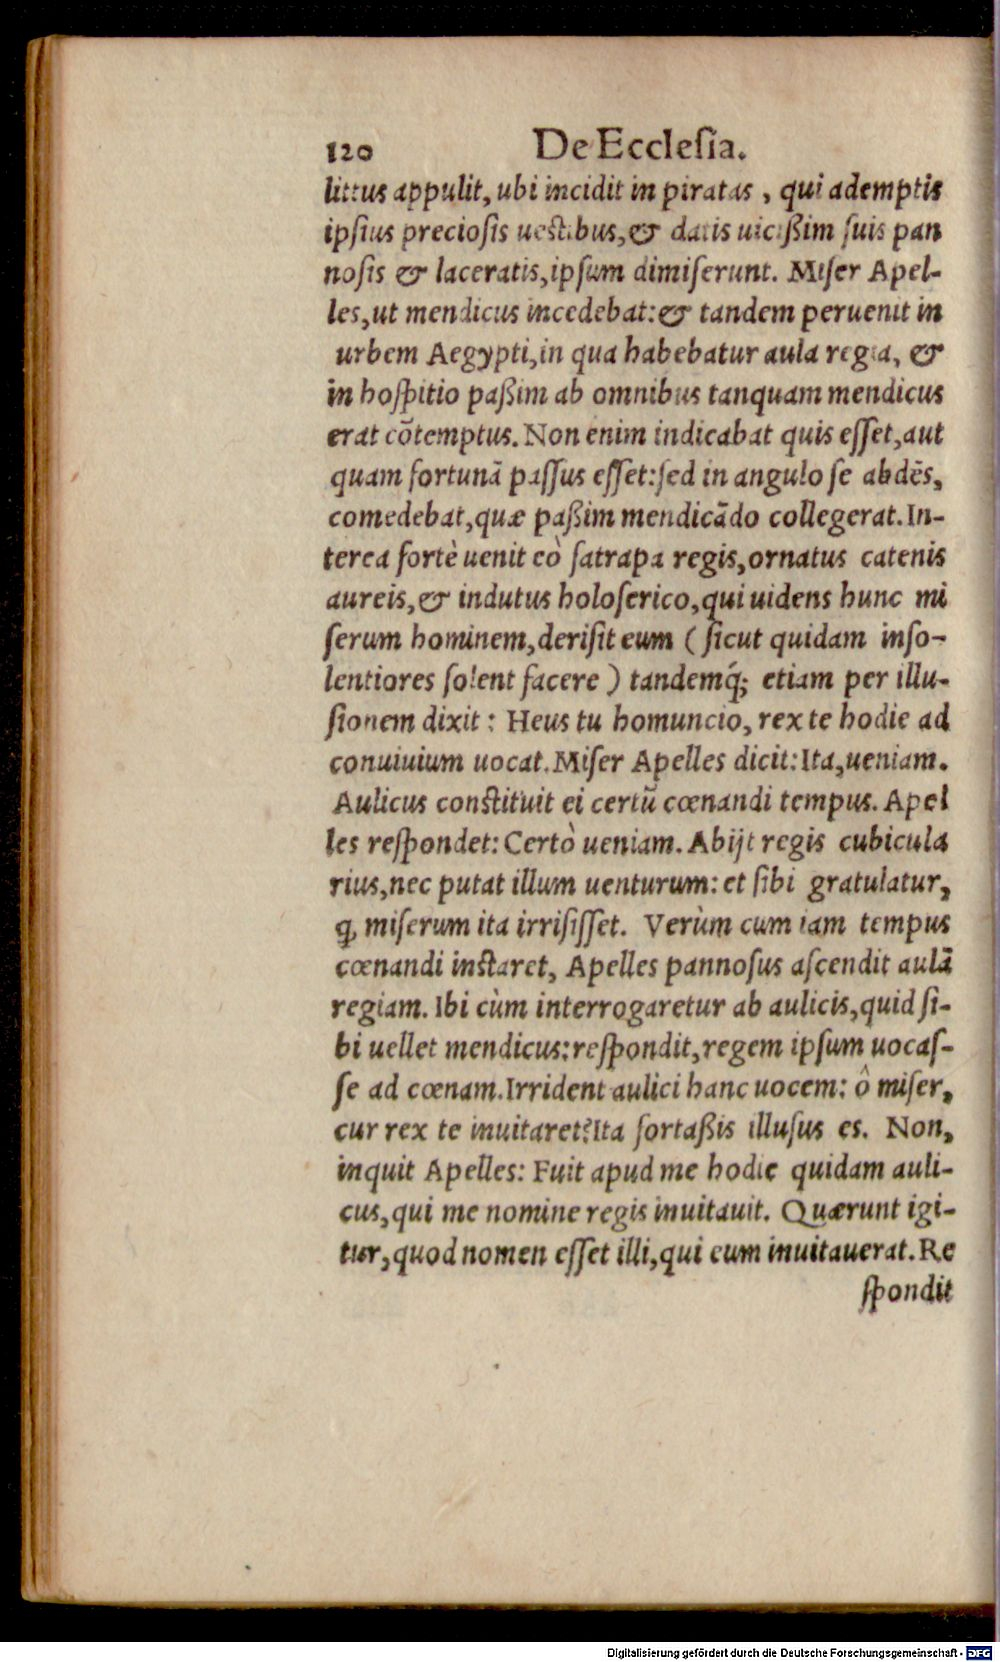 120 De Ecclesia.
littus appulit, ubi incidit in piratas, qui ademptis
ipsius preciosis uestibus, & datis uicißim suis pan
nosis & laceratis, ipsum dimiserunt. Miser Apel-
les, ut mendicus incedebat: & tandem peruenit in
urbem Aegypti, in qua habebatur aula regia, &
in hospitio paßim ab omnibus tanquam mendicus
erat cõtemptus. Non enim indicabat quis esset, aut
quam fortunã passus esset: sed in angulo se abdẽs,
comedebat, quæ paßim mendicãdo collegerat. In-
terea fortè uenit eò satrapa regis, ornatus catenis
aureis, & indutus holoserico, qui uidens hunc mi
serum hominem, derisit eum (sicut quidam inso-
lentiores solent facere) tandemq́; etiam per illu-
sionem dixit: Heus tu homuncio, rex te hodie ad
conuiuium uocat. Miser Apelles dicit: Ita, ueniam.
Aulicus constituit ei certũ cœnandi tempus. Apel
les respondet: Certò ueniam. Abijt regis cubicula
rius, nec putat illum uenturum: et sibi gratulatur,
ꝙ miserum ita irrisisset. Verùm cum iam tempus
cœnandi instaret, Apelles pannosus ascendit aulã
regiam. Ibi cùm interrogaretur ab aulicis, quid si-
bi uellet mendicus: respondit, regem ipsum uocas-
se ad cœnam. Irrident aulici hanc uocem: ô miser,
cur rex te inuitaret? Ita fortaßis illusus es. Non,
inquit Apelles: Fuit apud me hodie quidam auli-
cus, qui me nomine regis inuitauit. Quærunt igi-
tur, quod nomen esset illi, qui eum inuitauerat. Re
spondit
Digitalisierung gefördert durch die Deutsche Forschungsgemeinschaft - DFG